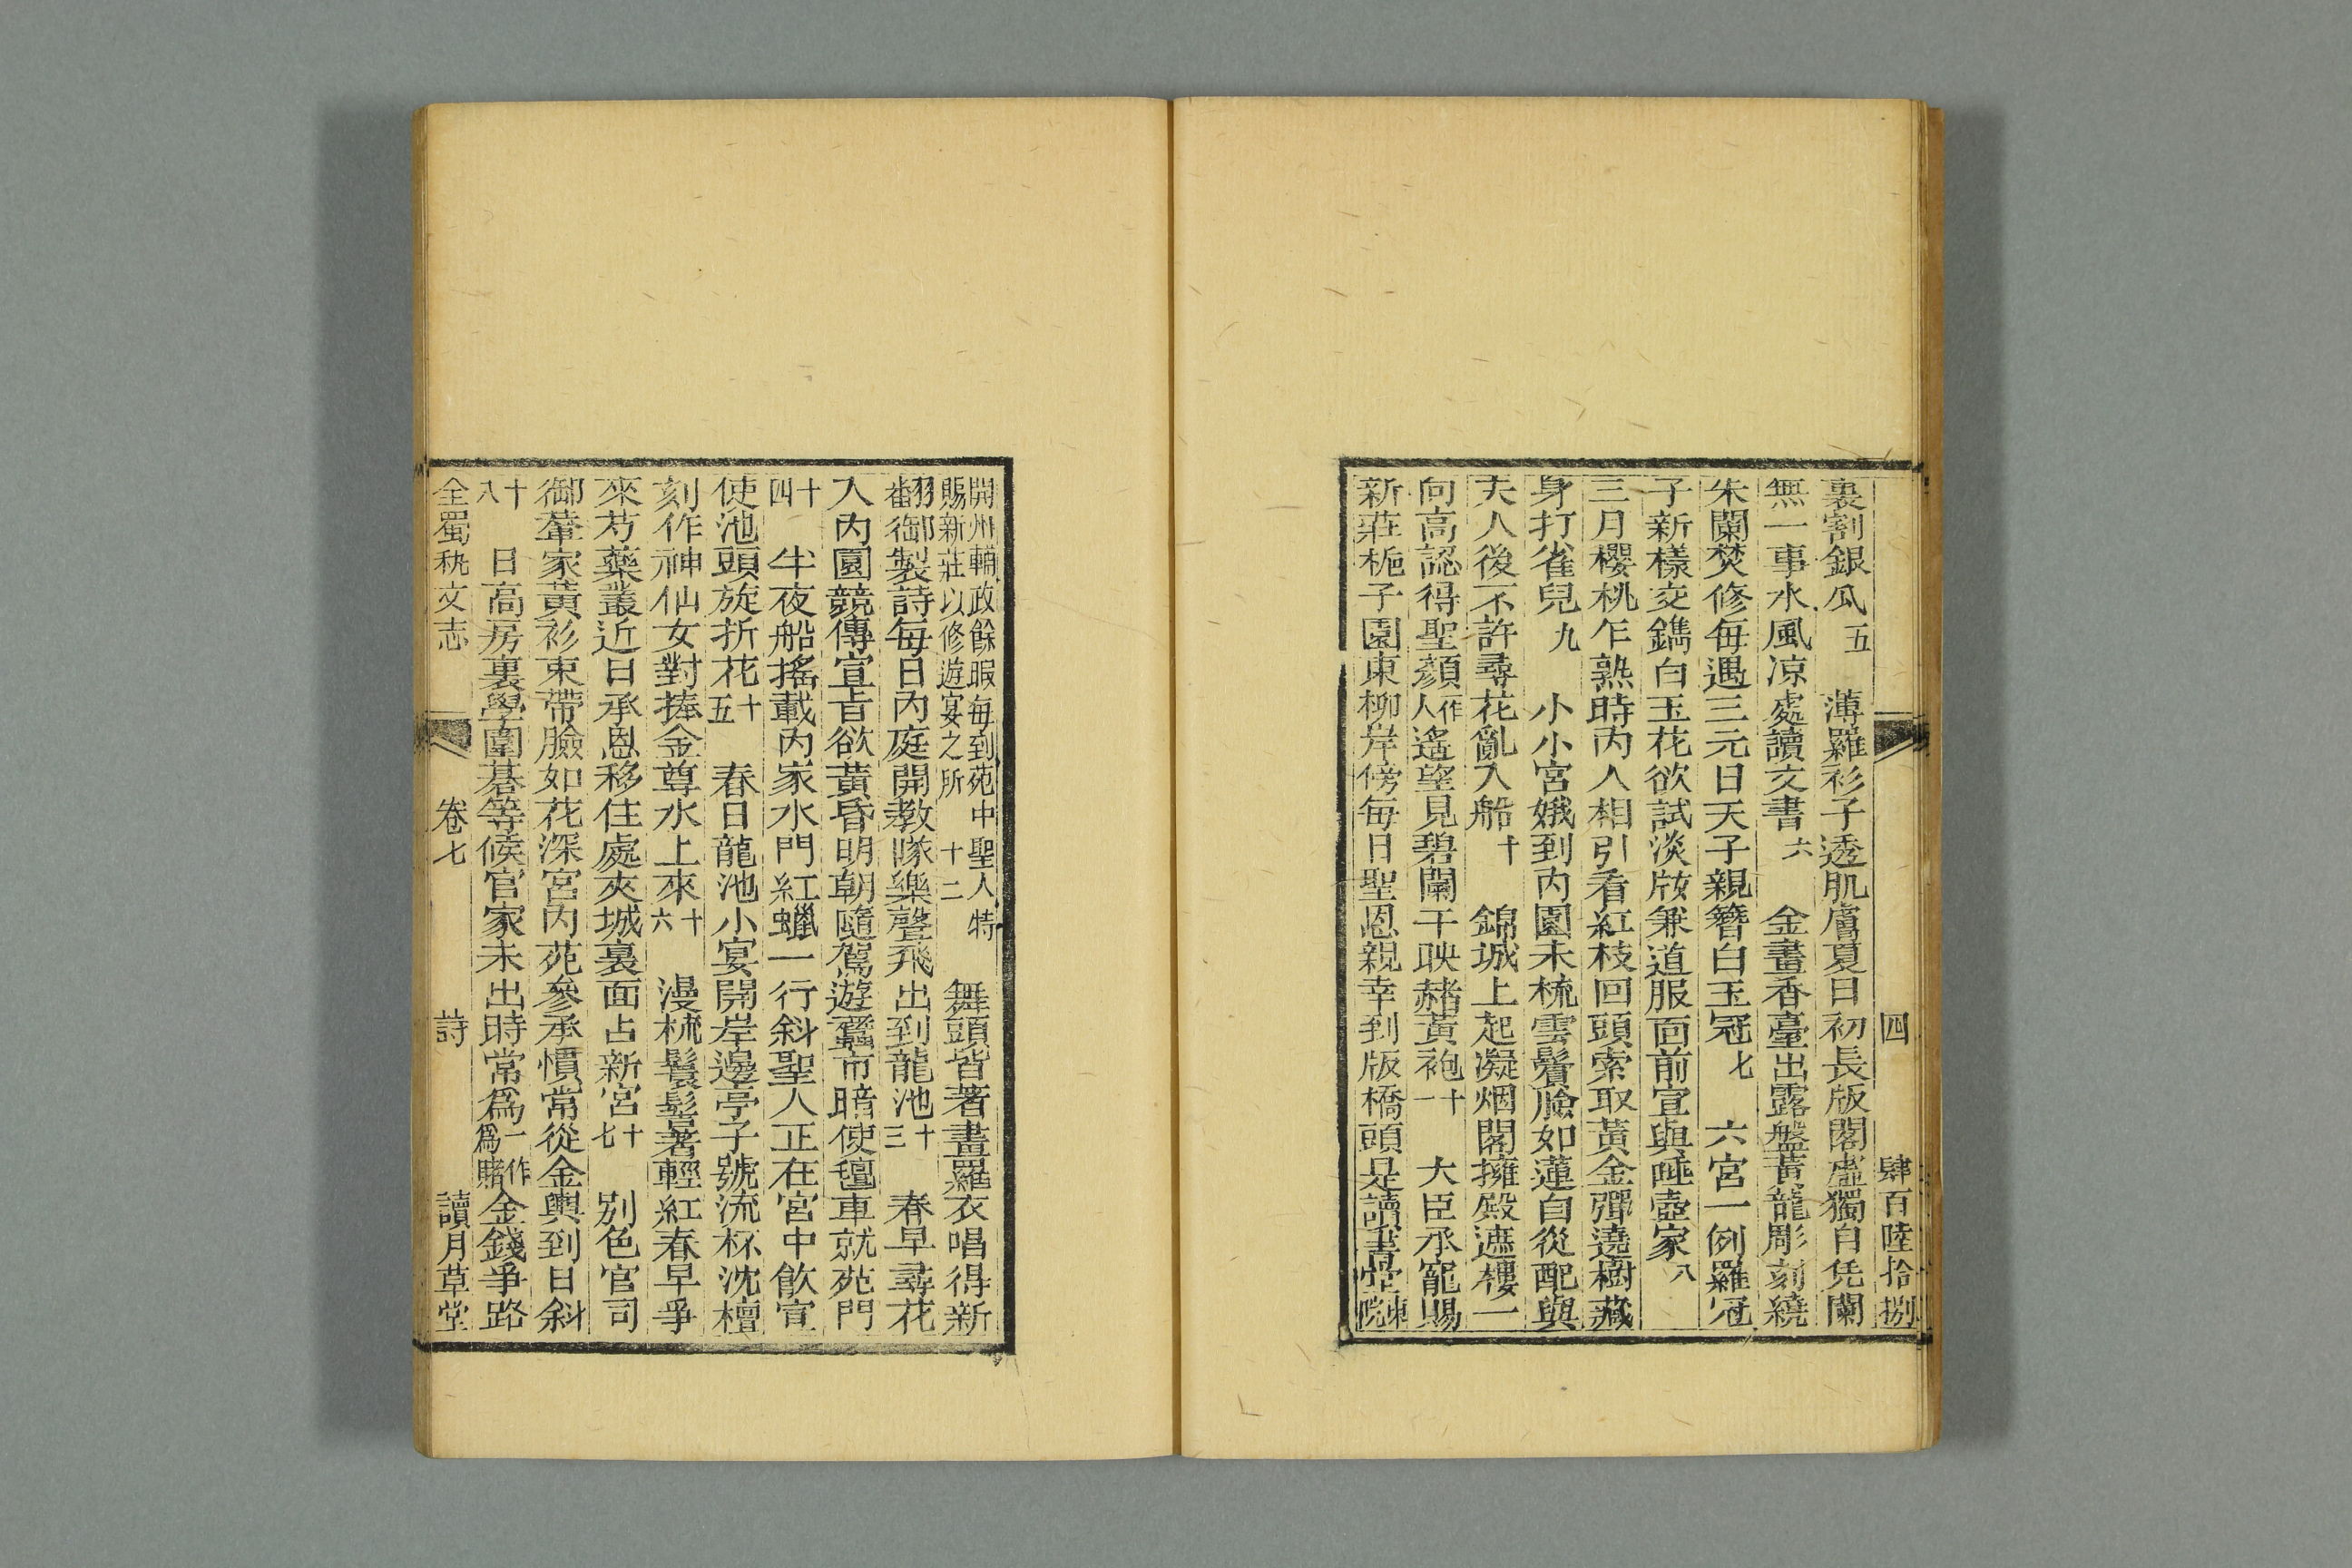 四 肆百陸拾捌
裏割銀瓜五 薄羅衫子透肌膚夏日初長版閣虛獨自凭闌
無一事水風凉處讀文書六 金畫香臺出露盤黃龍彫刻繞
朱闌焚修每遇三元日天子親簪白玉冠七 六宮一例羅冠
子新樣交鐫白玉花欲試淡糚兼道服面前宣與唾壺家八
三月櫻桃乍熟時內人相引看紅枝回頭索取黃金彈遶樹藏
身打雀兒九 小小宮娥到內園未梳雲鬢臉如蓮自從配與
夫人後不許尋花亂入船十 錦城上起凝烟閣擁殿遮樓一
向高認得聖顏作人遙望見碧闌干映赭黃袍十一 大臣承寵賜
新莊梔子園東柳岸傍每日聖恩親幸到版橋頭是讀書堂東院
開州輔政餘暇每到苑中聖人特賜新莊以修遊宴之所十二 舞頭皆著畫羅衣唱得新
翻御製詩每日內庭開教隊樂聲飛出到龍池十三 春早尋花
入內園競傳宣旨欲黃昏明朝隨駕遊蠶市暗使氊車就苑門
十四 半夜船搖載內家水門紅蠟一行斜聖人正在宮中飲宣
使池頭旋折花十五 春日龍池小宴開岸邊亭子號流杯沈檀
刻作神仙女對捧金尊水上來十六 漫梳鬟髻著輕紅春早爭
來芍藥叢近日承恩移住處夾城裏面占新宮十七 別色官司
御輦家黃衫束帶臉如花深宮內苑參承慣常從金輿到日斜
十八 日高房裏學圍棊等候官家未出時常爲一作爲賭金錢爭路
全蜀秇文志 卷七 詩 讀月草堂